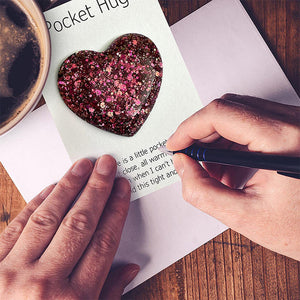 Pocket Hug
is a little pocket
close, all warm
when I can't
d this tight and